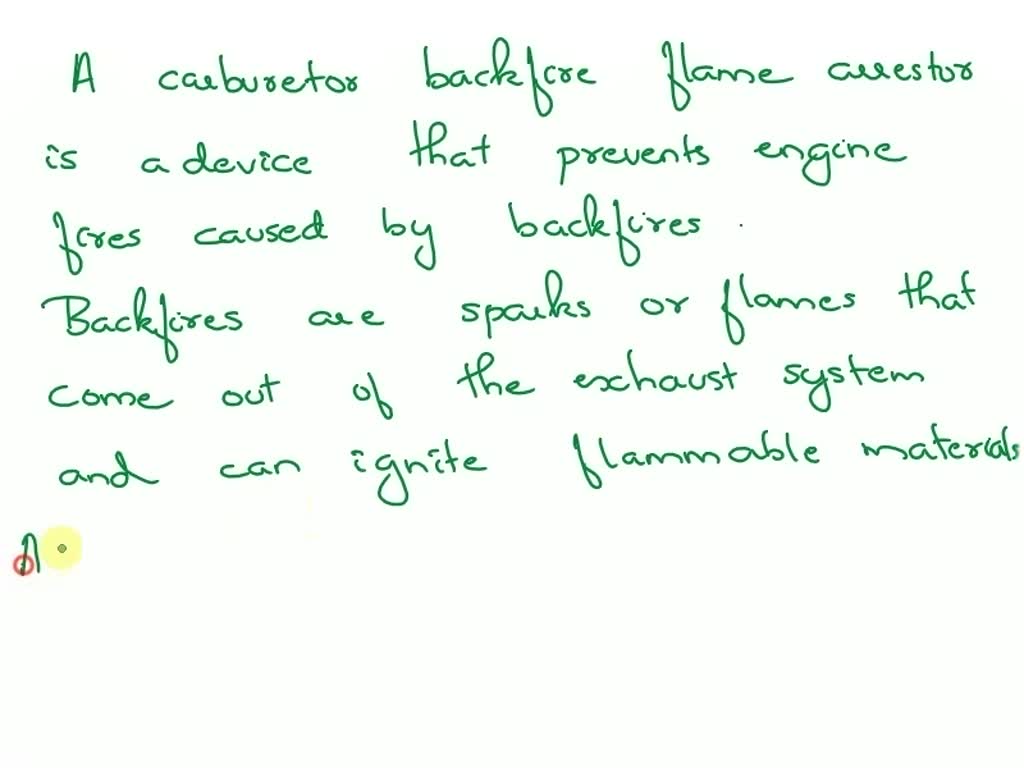 A carburetor backfire flame arrestor
is a device that prevents engine
fires caused by backfires.
Backfires are sparks or flames that
come out of the exhaust system
and can ignite flammable materials
A